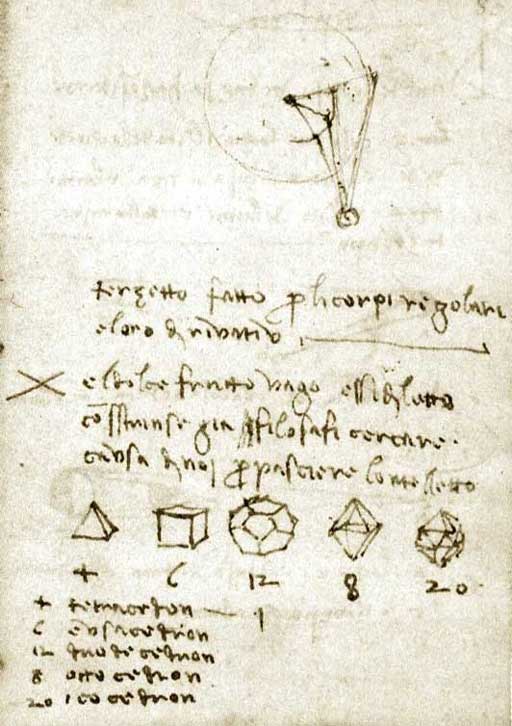 terzetto fatto p li corpi regolari
e loro dirivativi
el dolce frutto vago essi diletto
cōstrinse gia filosafi cercare
causa di noi p pasciere lontelletto
4 6 12 8 20
4 tetracedron 1
6 eusacedron
12 duodecedron
8 ottocedron
20 icocedron